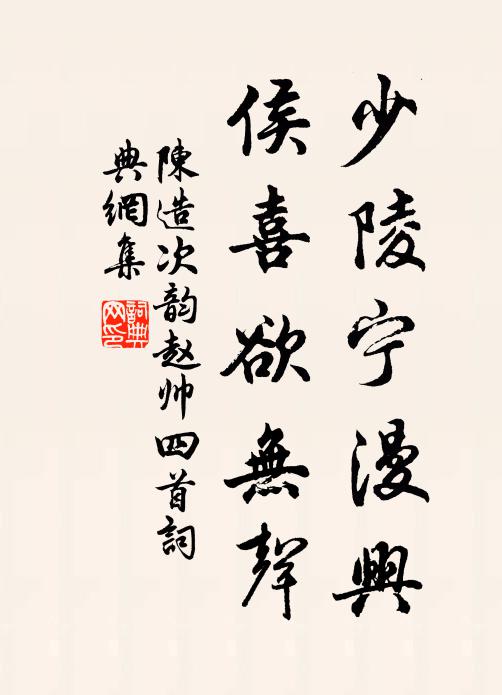 少陵宁漫興
侯喜欲無聲
陳造次韵赵帅四首詞
典網集
詞典
网印